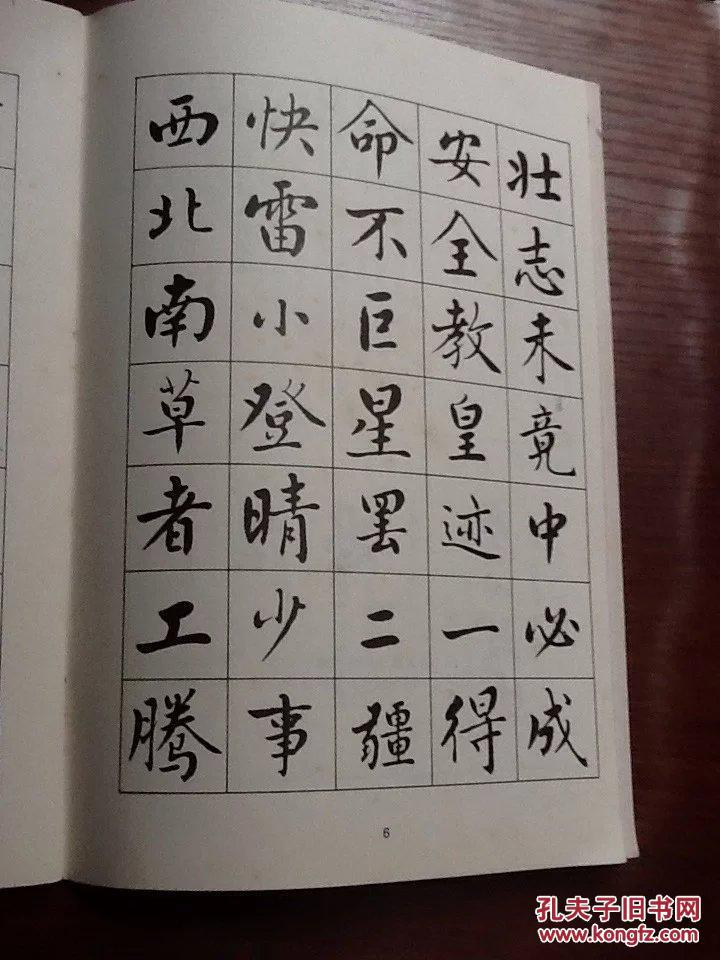 壮志未竟中必成
安全教皇迹一得
命不巨星罢二疆
快雷小登晴少事
西北南草者工腾
6
孔夫子旧书网
www.kongfz.com